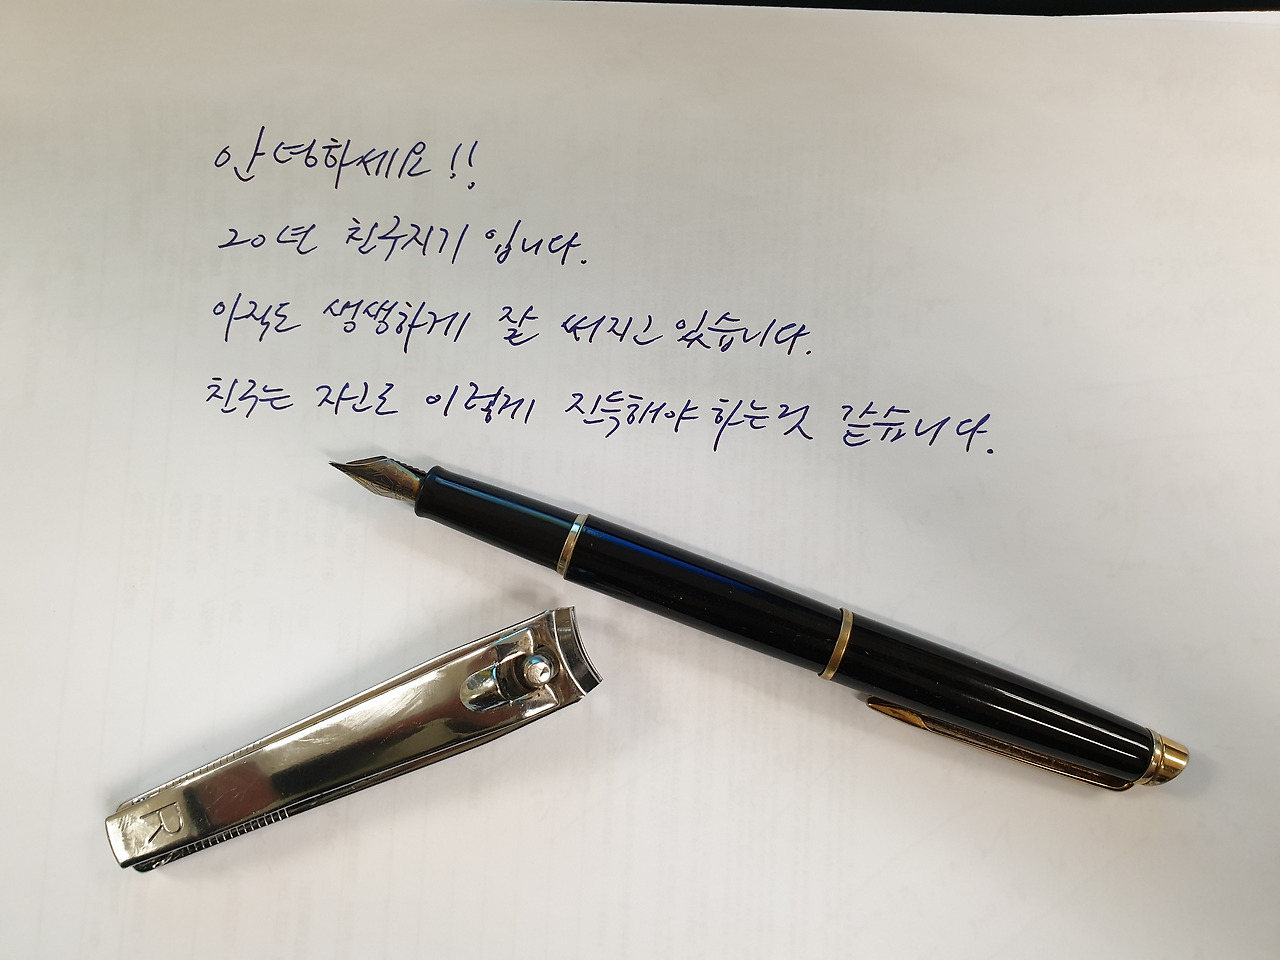 안녕하세요!!
20년 친구지기 입니다.
아직도 생생하게 잘 써지고 있습니다.
친구는 자고로 이렇게 진득해야 하는것 같습니다.
R